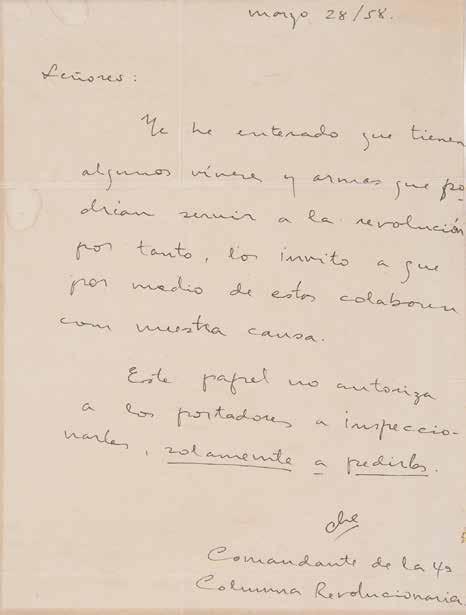 marzo 28/58.
Señores:
Me he enterado que tienen
algunos vívere y armas que po-
drían servir a la revolución
por tanto, los invito a que
por medio de estos colaboren
com nuestra causa.
Este papel no autoriza
a los portadores a inspeccio-
narles, solamente a pedirlos.
Che
Comandante de la 4a
Columna Revolucionaria